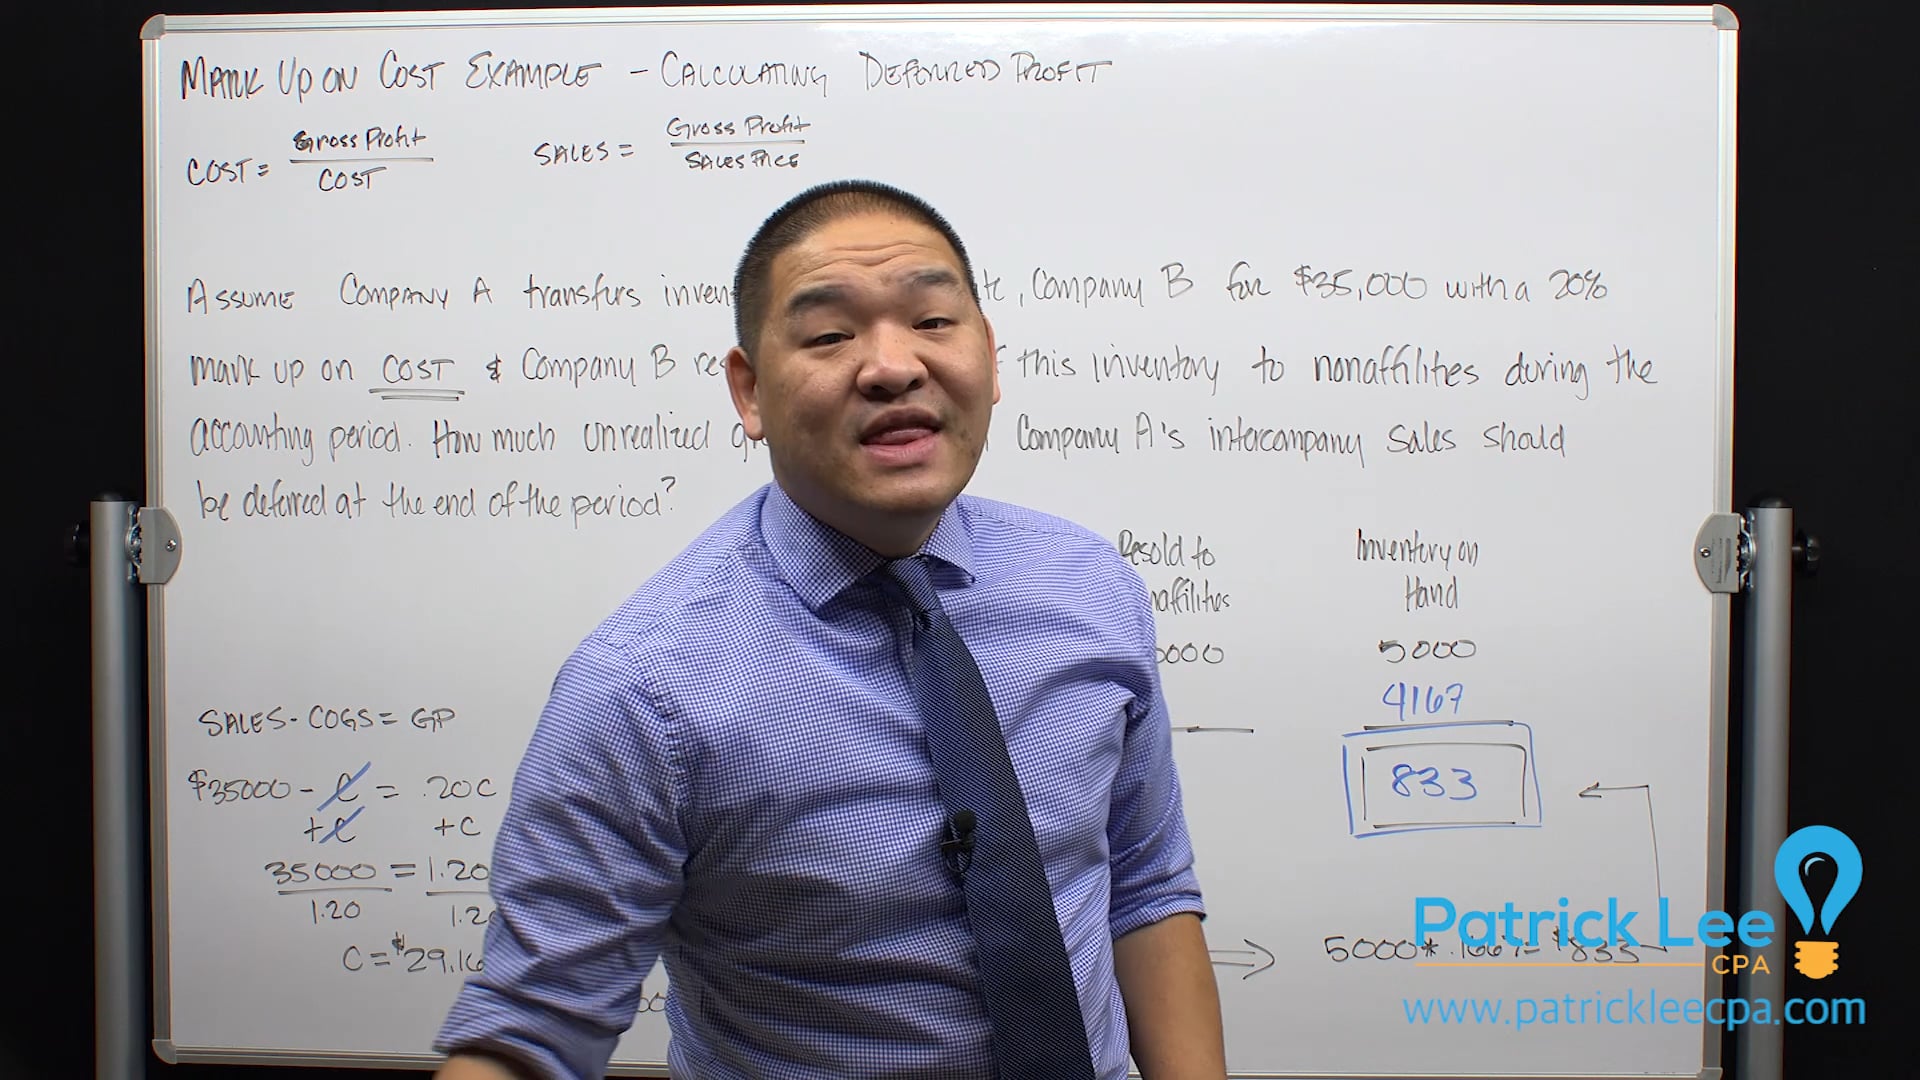 MARK UP ON COST EXAMPLE - CALCULATING DEFERRED PROFIT
COST = Gross Profit / COST
SALES = Gross Profit / SALES PRICE
ASSUME COMPANY A transfers inven , Company B for $35,000 with a 20%
mark up on COST & Company B this inventory to nonaffilities during the
accounting period. How much unrealized Company A's intercompany sales should
be deferred at the end of the period?
Resold to
Inventory on
Hand
000
5000
4167
833
SALES - COGS = GP
$35000 - C = .20C
+C +C
35000 = 1.20
1.20 1.2
C = $29,16
5000 * .1667 = $833
Patrick Lee
CPA
www.patrickleecpa.com